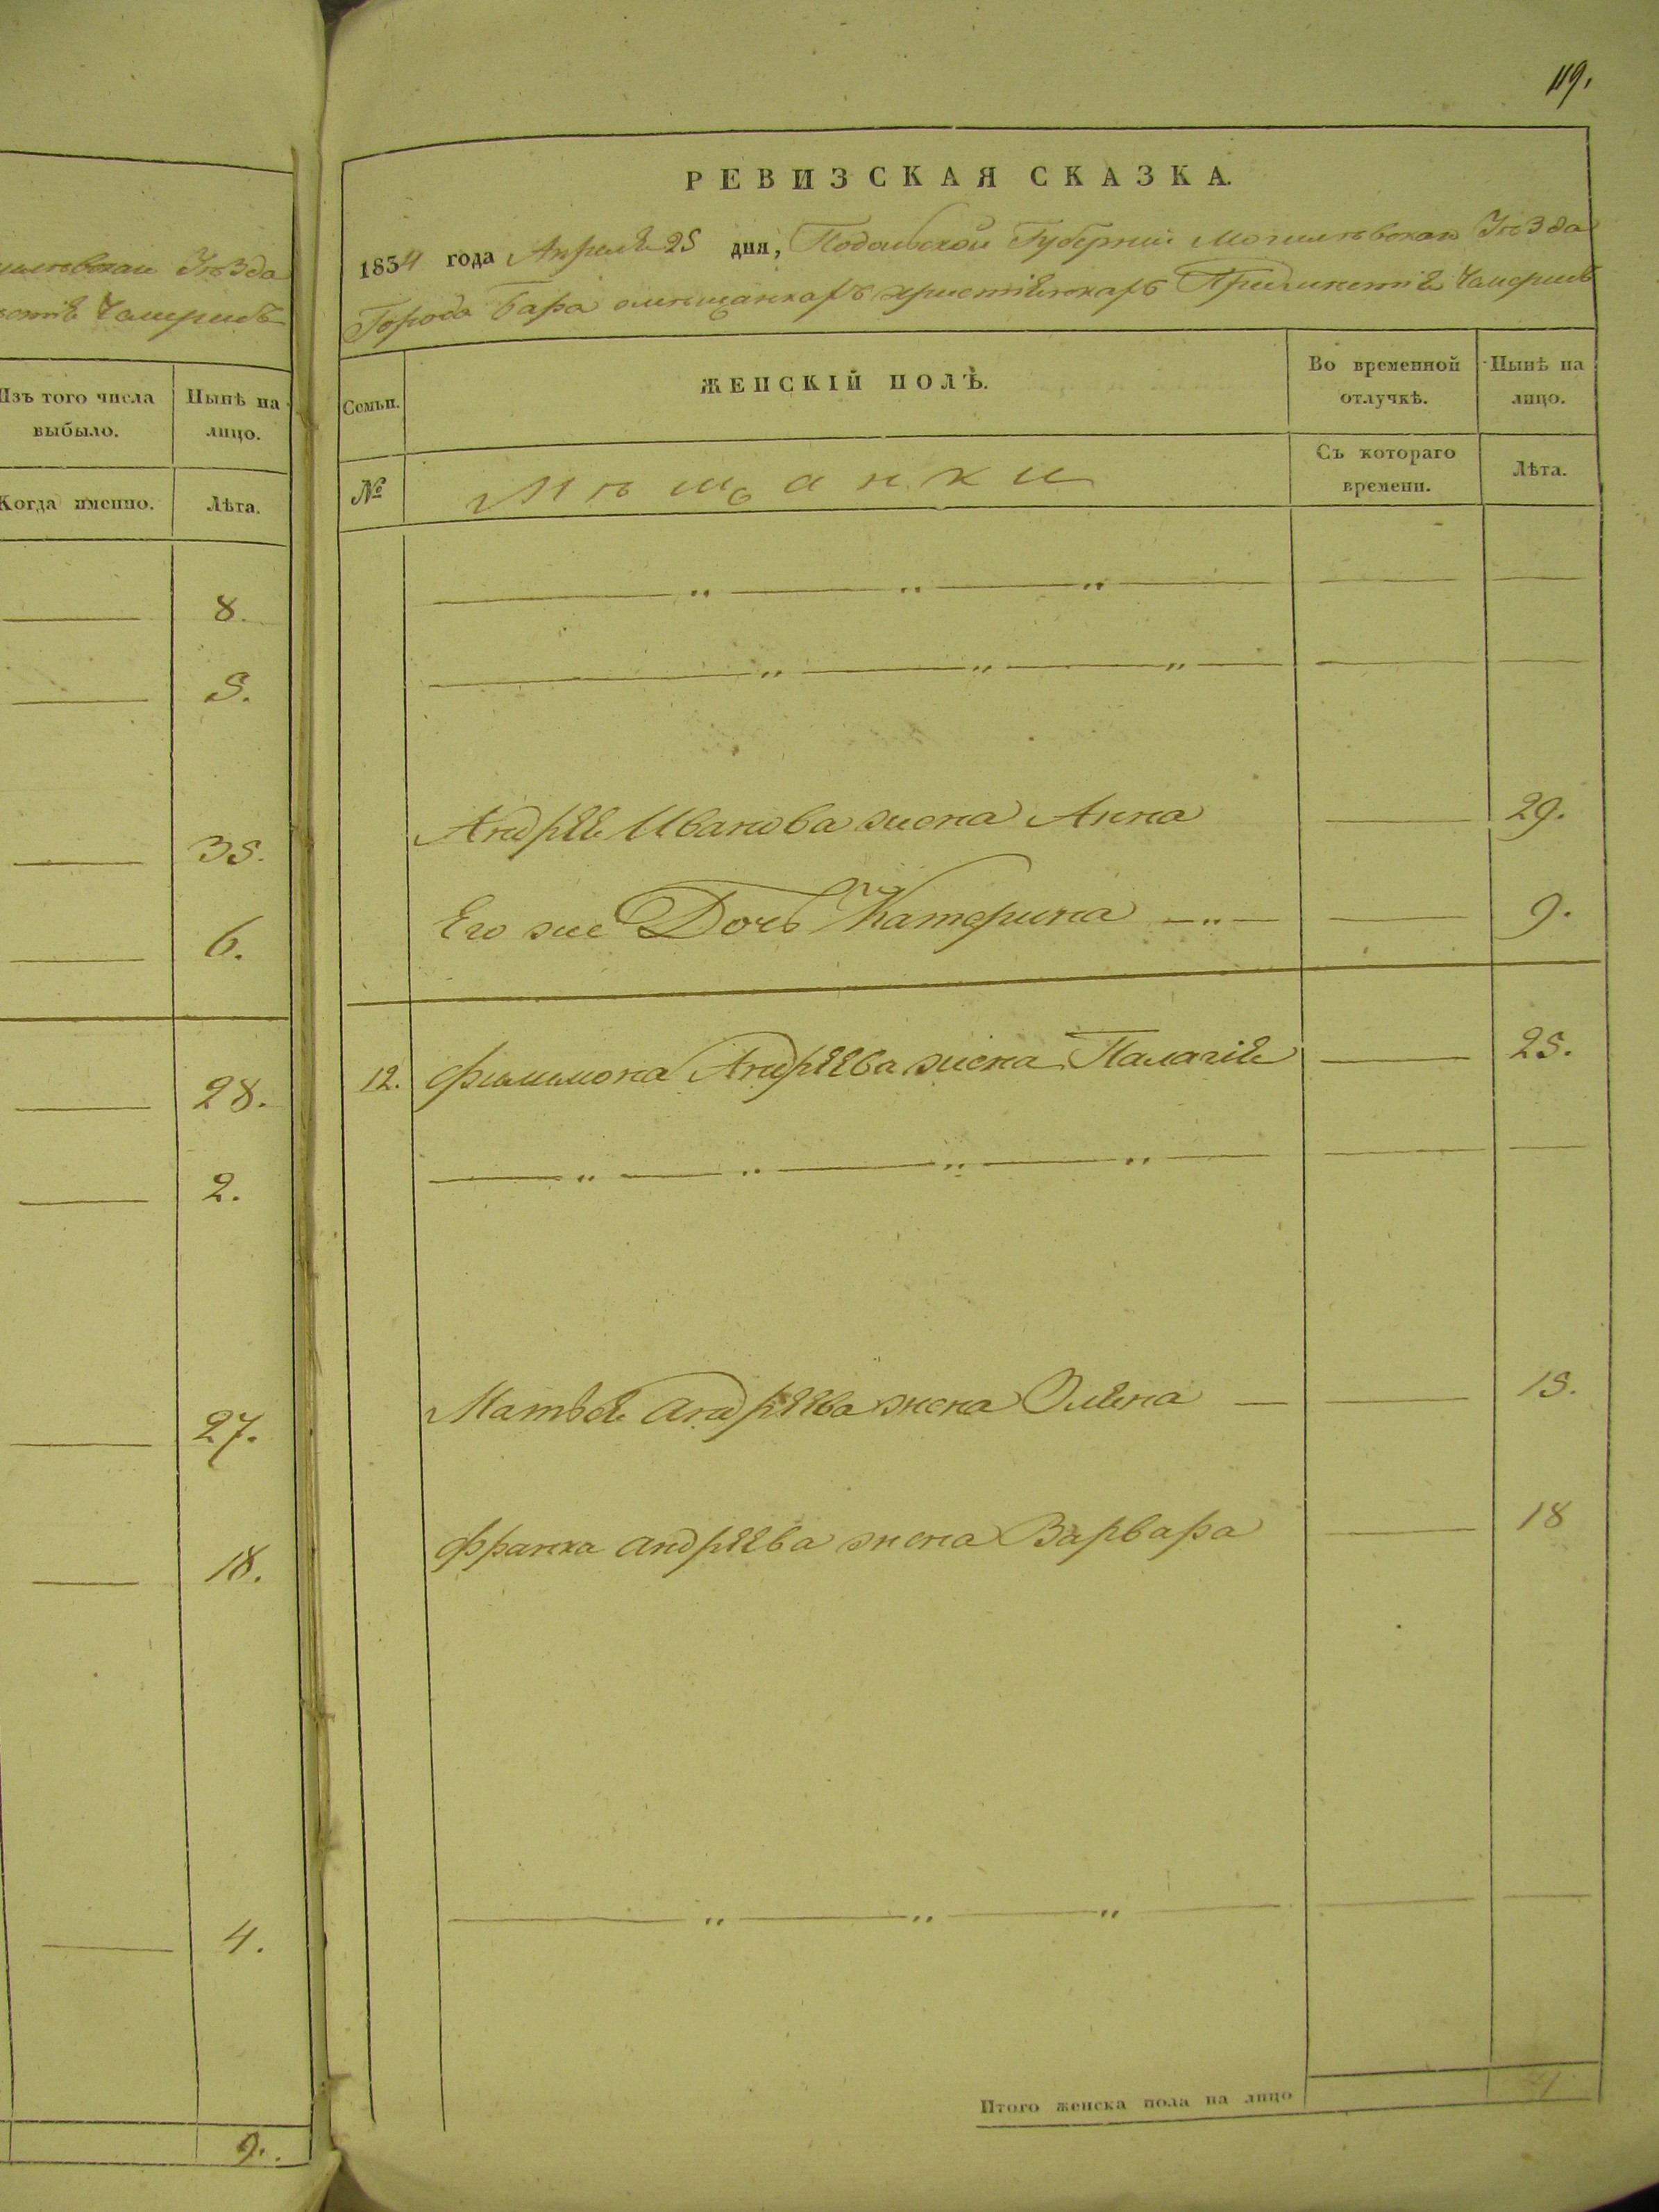 119.
РЕВИЗСКАЯ СКАЗКА.
1854 года Апреля 25 дня, Подольской Губернии Могилевскаго Уѣзда
Города Бара о мѣщанкахъ христіянкахъ Чемерис
Уѣзда
Изъ того числа выбыло.
Нынѣ на лицо.
Когда именно.
Лѣта.
8.
5.
35.
6.
28.
2.
27.
18.
4.
9.
Семьи.
ЖЕНСКІЙ ПОЛЪ.
Во временной отлучкѣ.
Нынѣ на лицо.
№
Мѣщанки
Съ котораго времени.
Лѣта.
Андрея Иванова жена Анна 29.
Его же Дочь Катерина 9.
12. Филимона Андреева жена Палагія 25.
Матвея Андреева жена Элена 15.
Франка Андреева жена Варвара 18
Итого женска пола на лицо